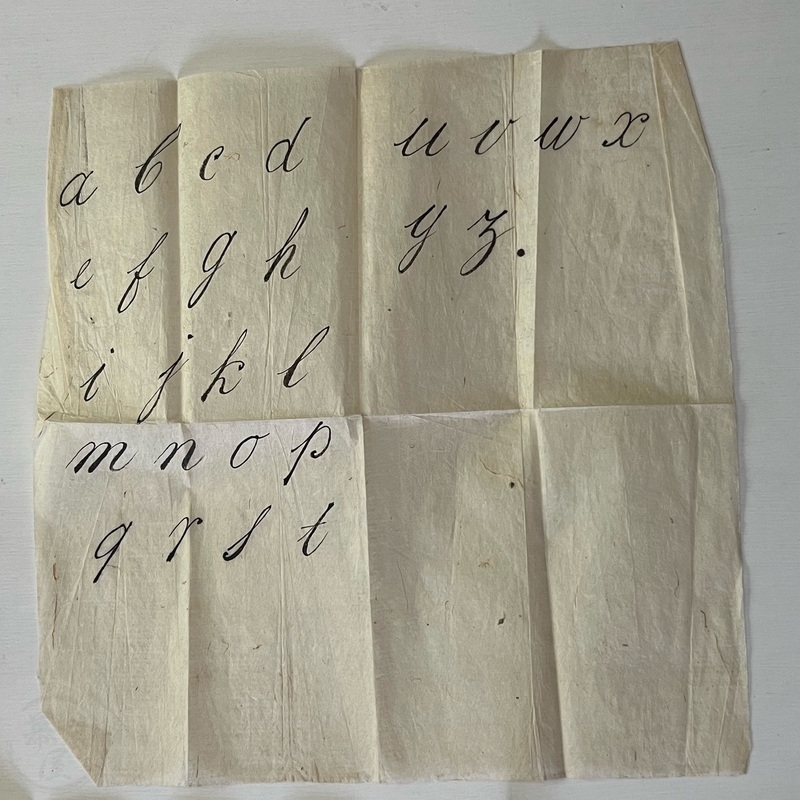 a b c d
e f g h
i j k l
m n o p
q r s t
u v w x
y z.